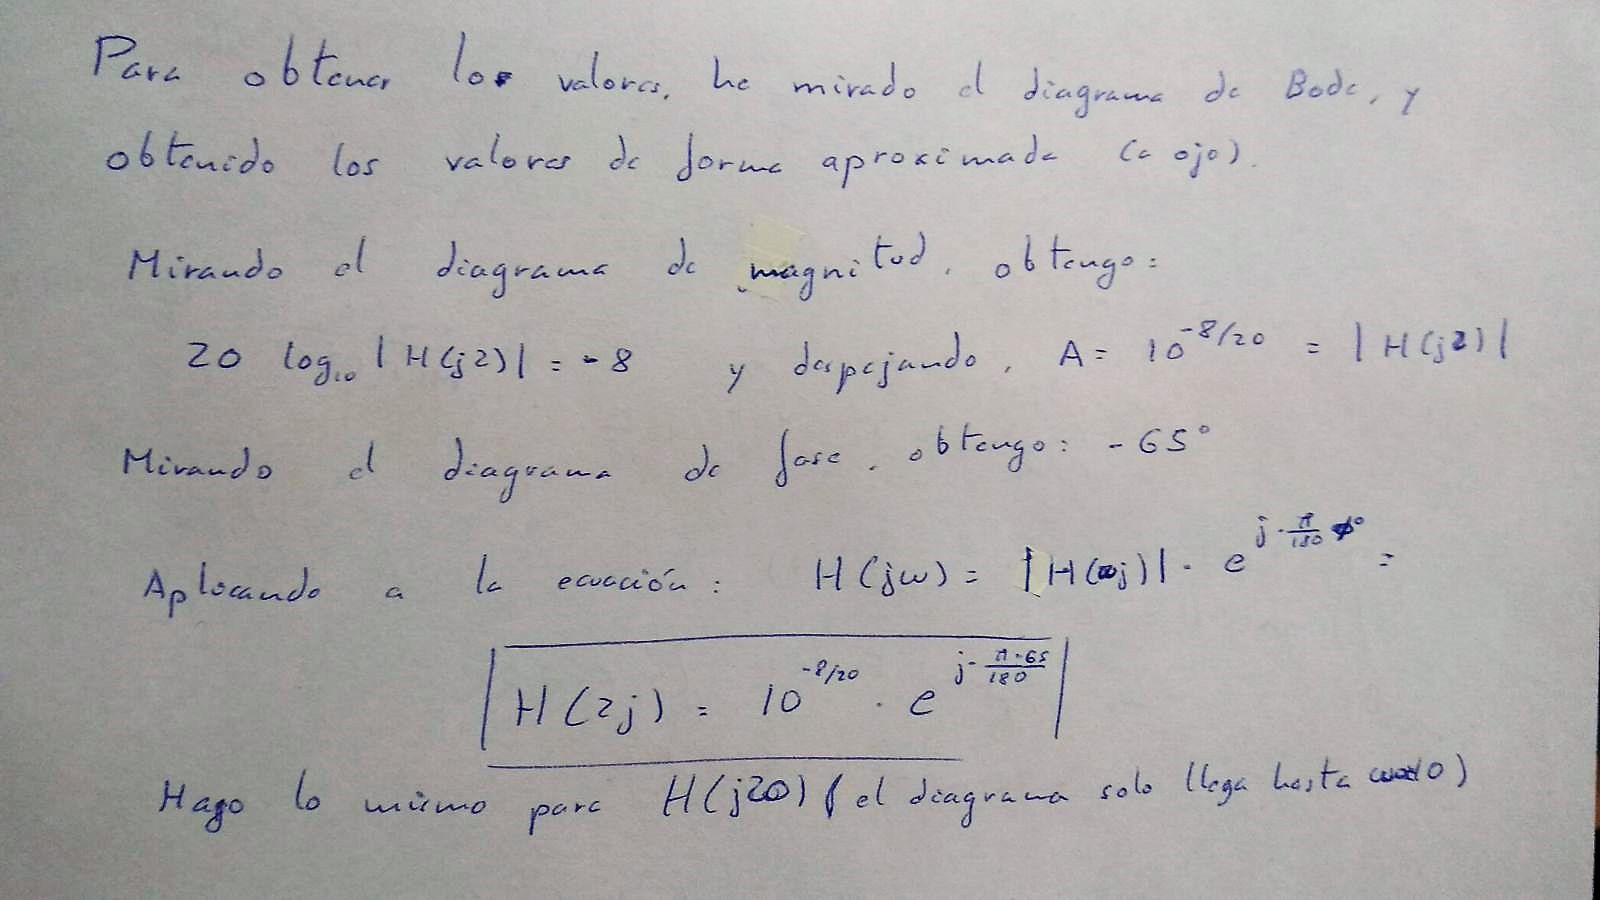 Para obtener los valores, he mirado el diagrama de Bode, y
obtenido los valores de forma aproximada (a ojo).
Mirando el diagrama de magnitud, obtengo:
20 log₁₀ |H(j2)| = -8 y despejando, A = 10^{-8/20} = |H(j2)|
Mirando el diagrama de fase, obtengo: -65°
Aplicando a la ecuación: H(jω) = |H(ωj)| · e^{j·\frac{π}{180}φ°} =
H(2j) = 10^{-8/20} · e^{j-\frac{π·65}{180}}
Hago lo mismo para H(j20) (el diagrama solo llega hasta 10)